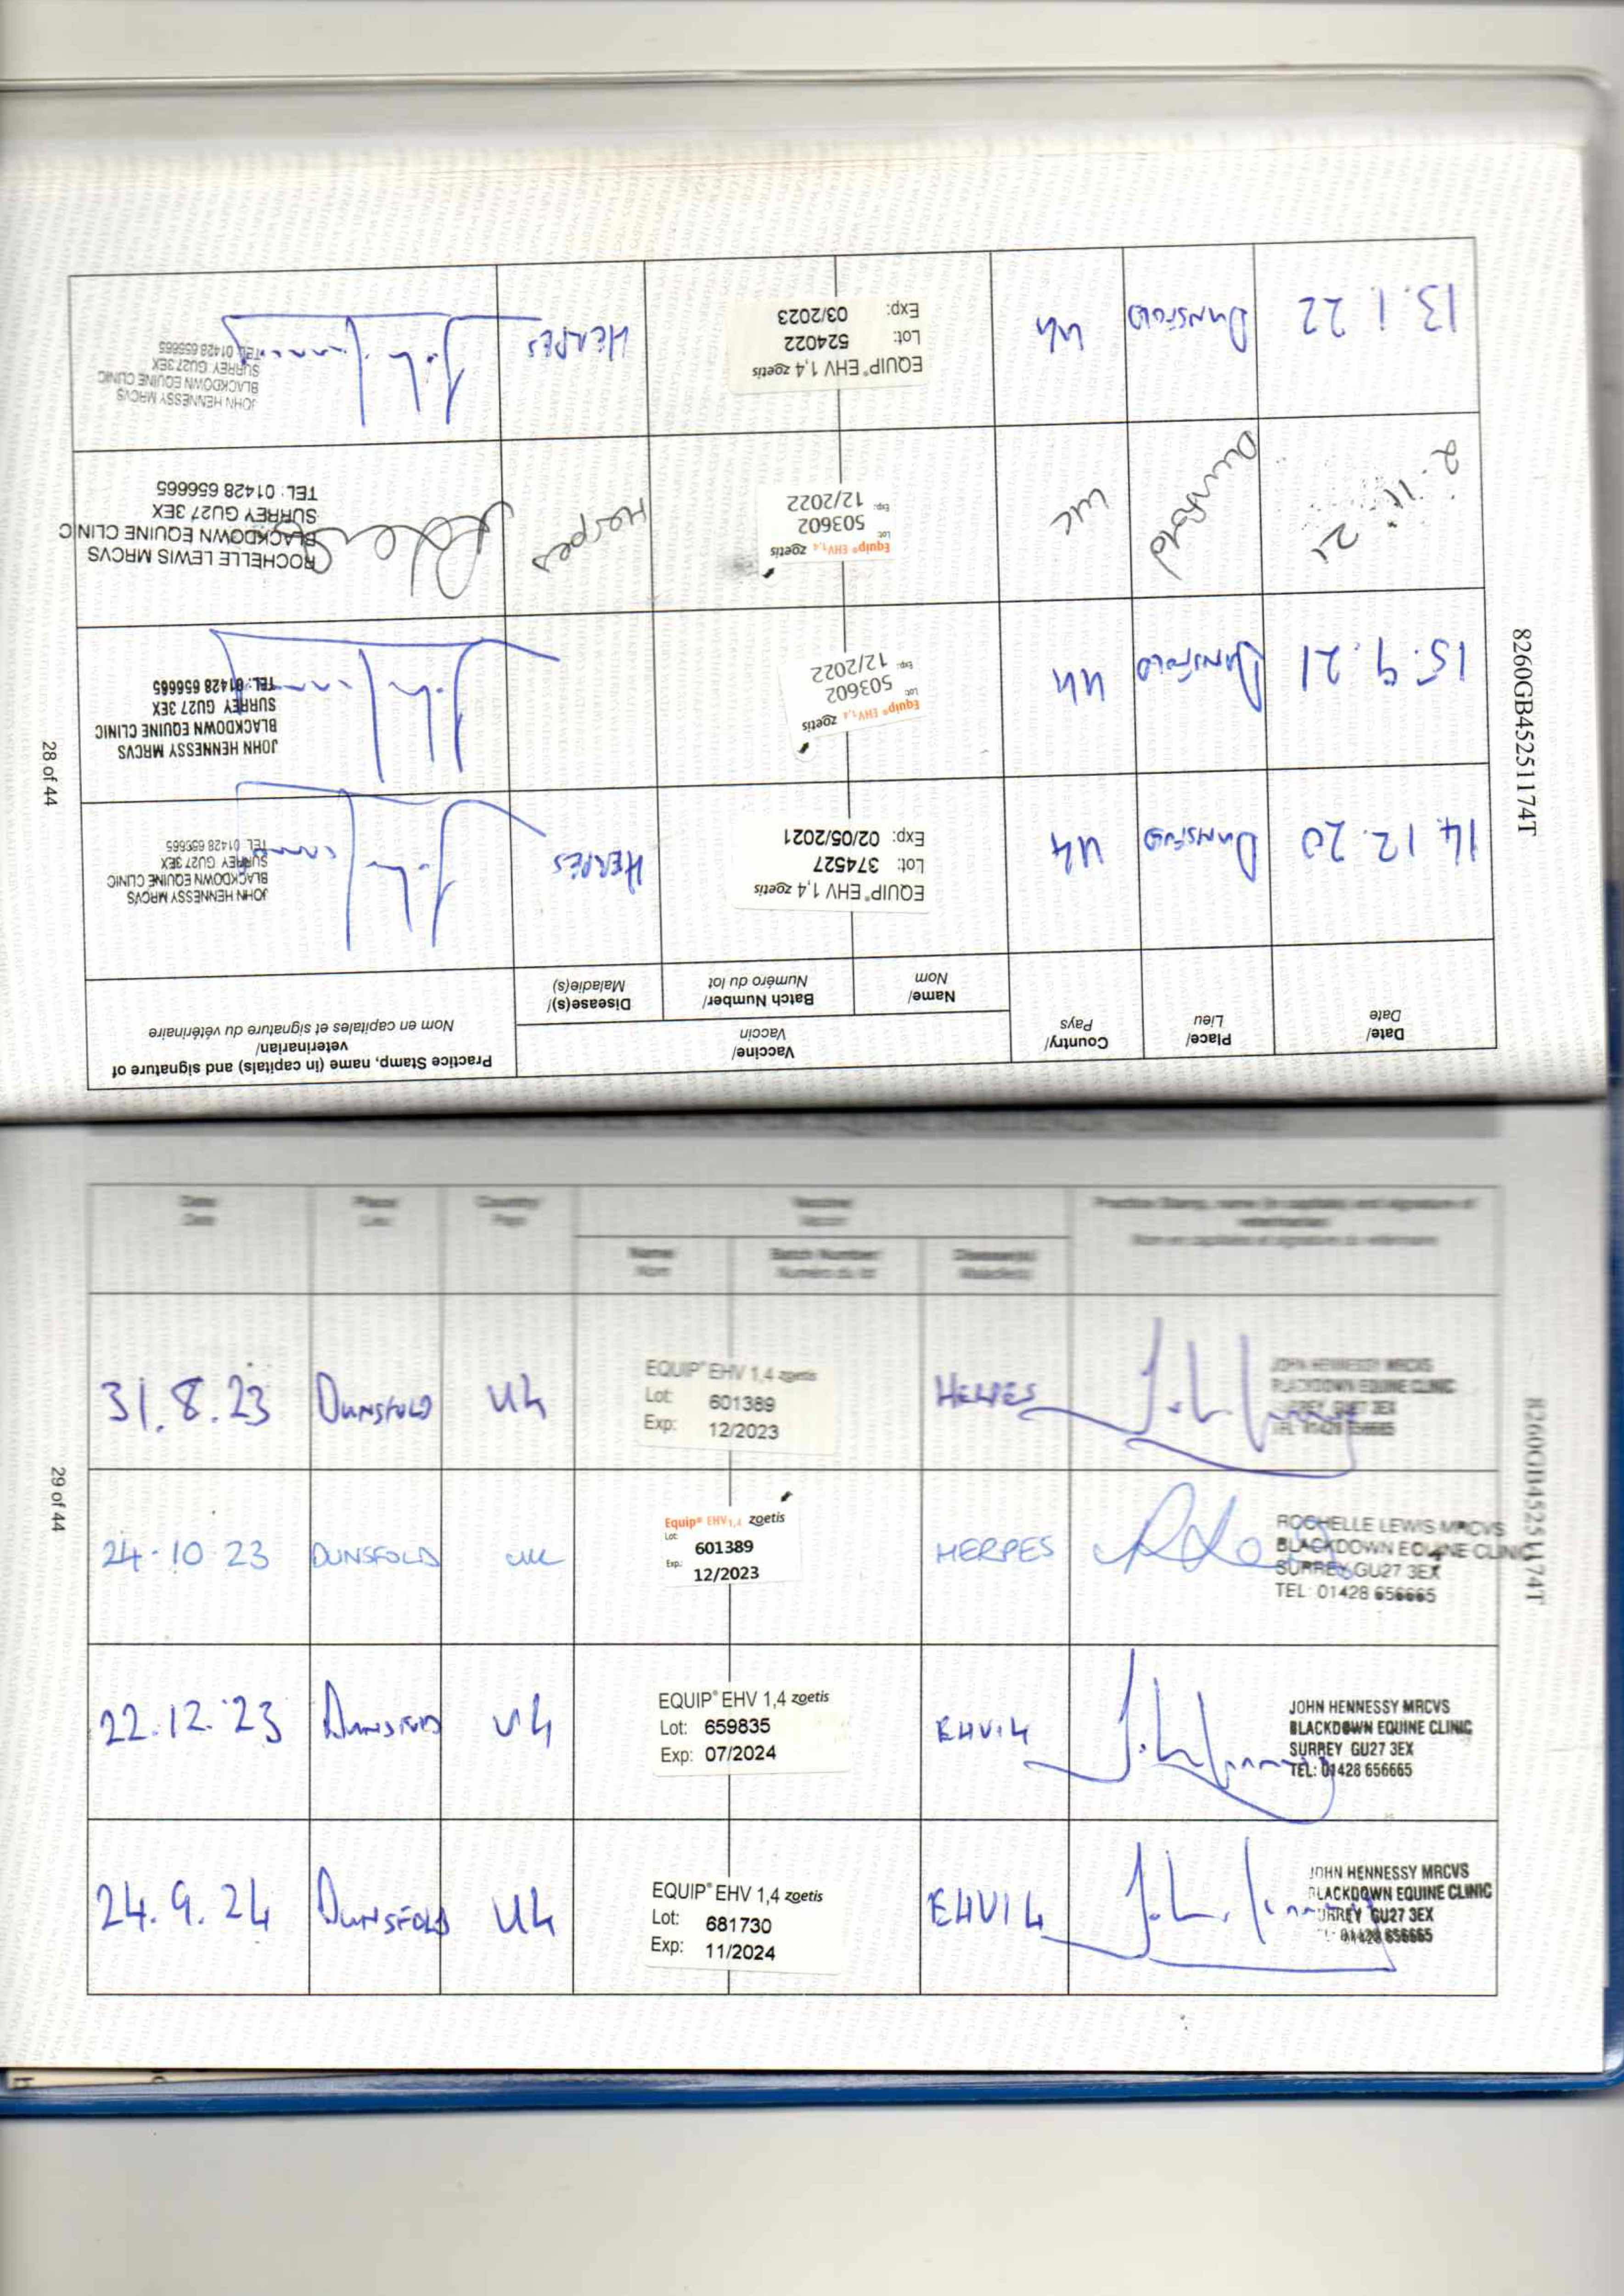 8260GB45251174T
28 of 44
Date/
Date
Place/
Lieu
Country/
Pays
Vaccine/
Vaccin
Name/
Nom
Batch Number/
Numéro du lot
Disease(s)/
Maladie(s)
Practice Stamp, name (in capitals) and signature of
veterinarian/
Nom en capitales et signature du vétérinaire
14.12.20 DUNSFOLD UK
EQUIP® EHV 1,4 zoetis
Lot: 374527
Exp: 02/05/2021
HERPES
JOHN HENNESSY MRCVS
BLACKDOWN EQUINE CLINIC
SURREY GU27 3EX
TEL: 01428 656665
15.9.21 DUNSFOLD UK
Equip® EHV1,4 zoetis
Lot: 503602
Exp: 12/2022
JOHN HENNESSY MRCVS
BLACKDOWN EQUINE CLINIC
SURREY GU27 3EX
TEL: 01428 656665
2.11.21 Dunsfold UK
Equip® EHV1,4 zoetis
Lot: 503602
Exp: 12/2022
Herpes
ROCHELLE LEWIS MRCVS
BLACKDOWN EQUINE CLINIC
SURREY GU27 3EX
TEL: 01428 656665
13.1.22 DUNSFOLD UK
EQUIP® EHV 1,4 zoetis
Lot: 524022
Exp: 03/2023
HERPES
JOHN HENNESSY MRCVS
BLACKDOWN EQUINE CLINIC
SURREY GU27 3EX
TEL: 01428 656665
8260GB45251174T
29 of 44
Date/
Date
Place/
Lieu
Country/
Pays
Vaccine/
Vaccin
Name/
Nom
Batch Number/
Numéro du lot
Disease(s)/
Maladie(s)
Practice Stamp, name (in capitals) and signature of
veterinarian/
Nom en capitales et signature du vétérinaire
31.8.23 DUNSFOLD UK
EQUIP® EHV 1,4 zoetis
Lot: 601389
Exp: 12/2023
HERPES
JOHN HENNESSY MRCVS
BLACKDOWN EQUINE CLINIC
SURREY GU27 3EX
TEL: 01428 656665
24-10-23 DUNSFOLD UK
Equip® EHV1,4 zoetis
Lot: 601389
Exp.: 12/2023
HERPES
ROCHELLE LEWIS MRCVS
BLACKDOWN EQUINE CLINIC
SURREY GU27 3EX
TEL: 01428 656665
22.12.23 DUNSFOLD UK
EQUIP® EHV 1,4 zoetis
Lot: 659835
Exp: 07/2024
EHV14
JOHN HENNESSY MRCVS
BLACKDOWN EQUINE CLINIC
SURREY GU27 3EX
TEL: 01428 656665
24.9.24 DUNSFOLD UK
EQUIP® EHV 1,4 zoetis
Lot: 681730
Exp: 11/2024
EHV14
JOHN HENNESSY MRCVS
BLACKDOWN EQUINE CLINIC
SURREY GU27 3EX
TEL: 01428 656665